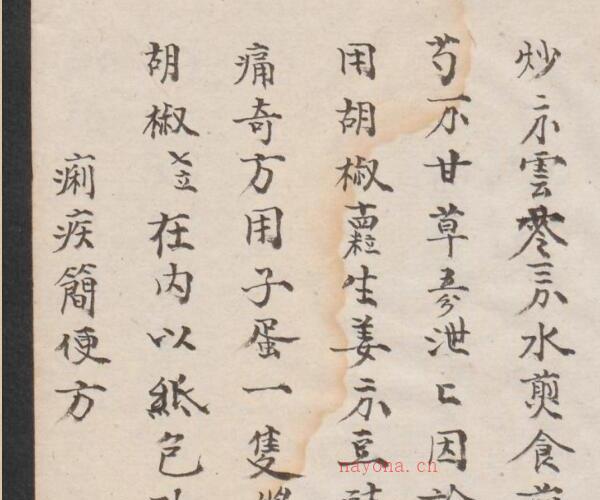 炒 二钱 雲苓 三钱 水煎食前
芍 一钱 甘草 五分 泄
用胡椒 十四粒 生姜 二钱 豆
痛奇方用子蛋一隻將
胡椒 〤粒 在内以紙包
痢疾簡便方
nayona.cn